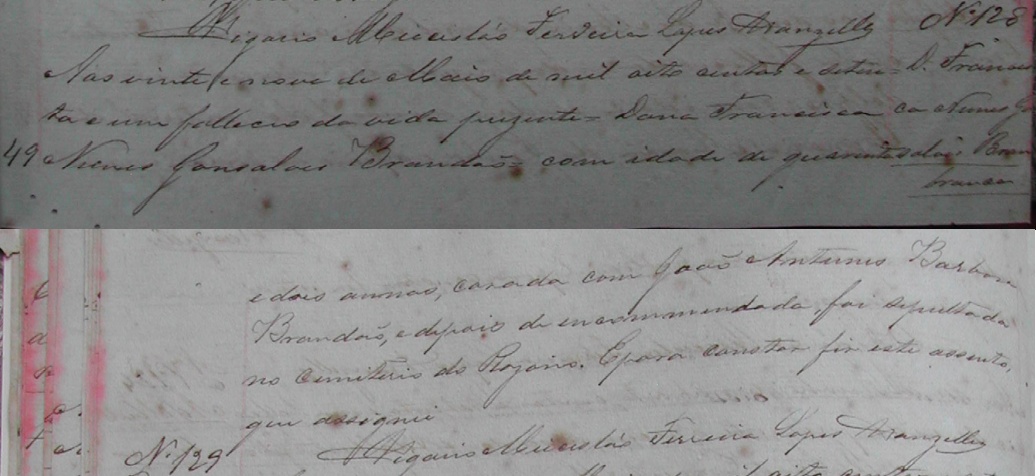 Vigario Miecesláo Ferreira Lopes Wanzeller Nº 128
Aos vinte e nove de Maio de mil oito centos e seten= D. Francis
ta e um falleceo da vida prezente= Dona Francisca ca Nunes G
49 Nunes Gonsalves Brandão= com idade de quarenta salves Bran
branca
e dois annos, casada com João Antunes Barbosa
Brandão, e depois de encommendada, foi sepultada
no cemiterio do Rozario. E para constar fiz este assento,
que assignei
Vigario Miecesláo Ferreira Lopes Wanzeller
Nº 129